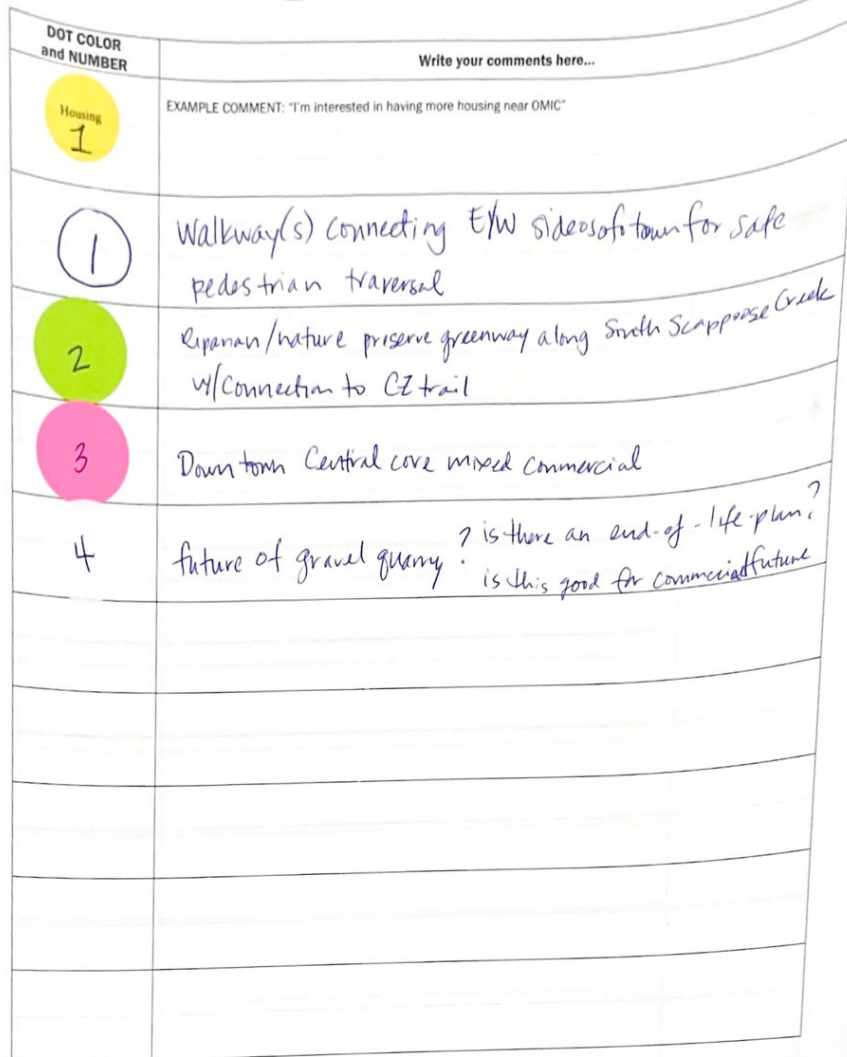 DOT COLOR
and NUMBER
Write your comments here...
Housing
1
EXAMPLE COMMENT: "I'm interested in having more housing near OMIC"
1
Walkway(s) connecting E/W sides of town for safe
pedestrian traversal
2
Riparian/nature preserve greenway along South Scappoose Creek
w/connection to CZ trail
3
Downtown Central core mixed commercial
4
future of gravel quarry? is there an end-of-life-plan?
is this good for commercial future